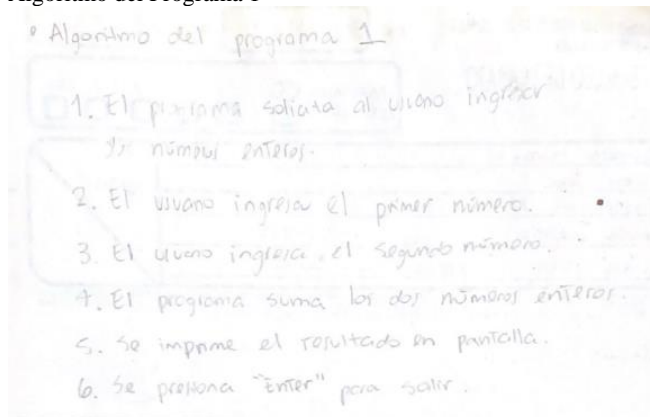 Algoritmo del Programa 1
• Algoritmo del programa 1
1. El programa solicita al usuario ingresar
dos números enteros.
2. El usuario ingresa el primer número.
3. El usuario ingresa el segundo número.
4. El programa suma los dos números enteros.
5. Se imprime el resultado en pantalla.
6. Se presiona "Enter" para salir.